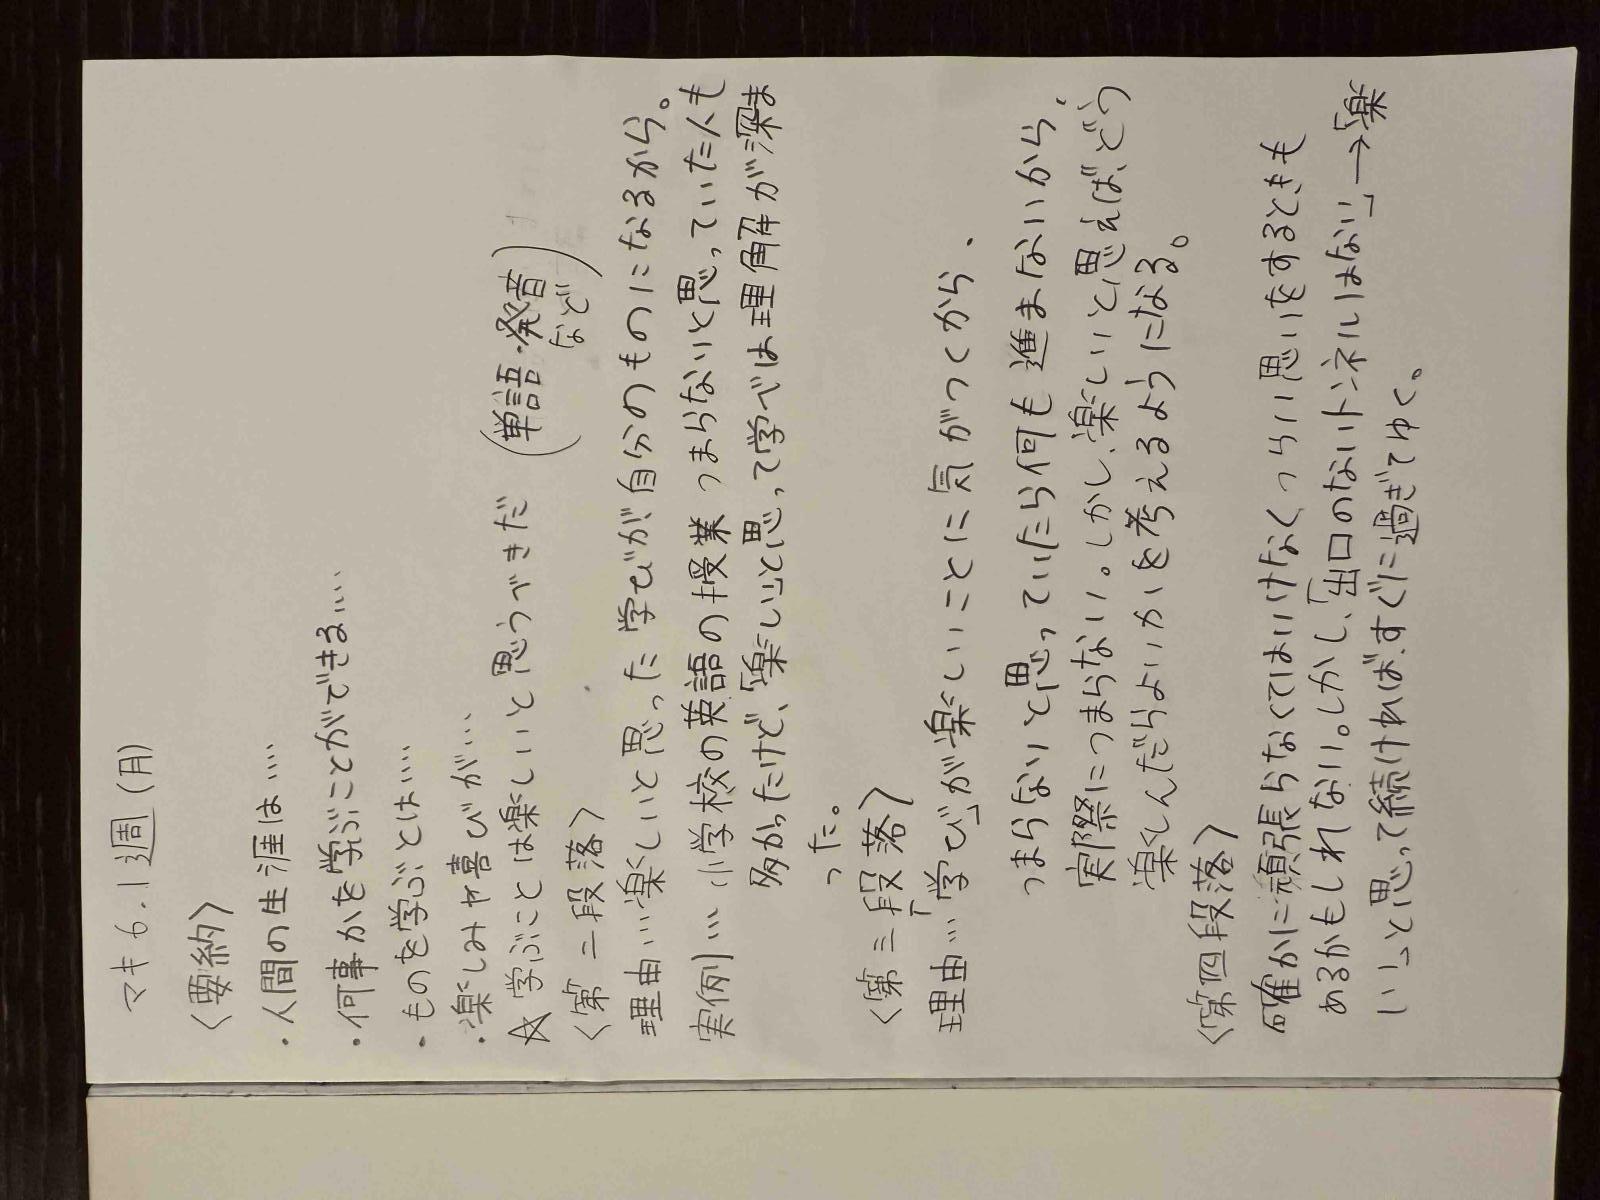 マキ 6.1週(月)
〈要約〉
・人間の生涯は‥‥
・何事かを学ぶことができる‥‥
・ものを学ぶとは‥‥
・楽しみや喜びが‥‥
☆学ぶことは楽しいと思うべきだ (単語・発音
など)
〈第二段落〉
理由‥‥楽しいと思った学びが自分のものになるから。
実例)‥‥小学校の英語の授業つまらないと思っていた人も
多かったけど、「楽しい」と思って学べば理解が深ま
った。
〈第三段落〉
理由‥‥「学び」が楽しいことに気がつくから、
つまらないと思っていたら何も進まないから、
実際につまらない。しかし、楽しいと思えば、どう
楽しんだらよいかを考えるようになる。
〈第四段落〉
確かに頑張らなくてはいけなくつらい思いをするときも
あるかもしれない。しかし、「出口のないトンネルはない」→「楽
しい」と思って続ければ、すぐに過ぎてゆく。